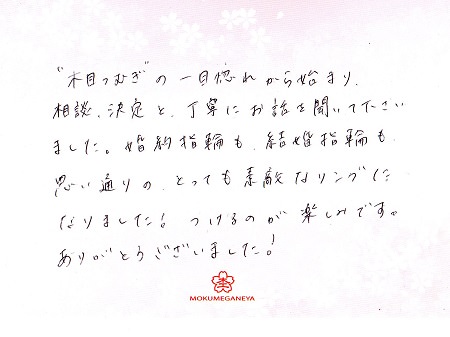 "木目つむぎ"の一目惚れから始まり、
相談、決定と、丁寧にお話を聞いて下さい
ました。婚約指輪も、結婚指輪も、
思い通りの、とっても素敵なリングに
なりました！つけるのが楽しみです。
ありがとうございました！
MOKUMEGANEYA